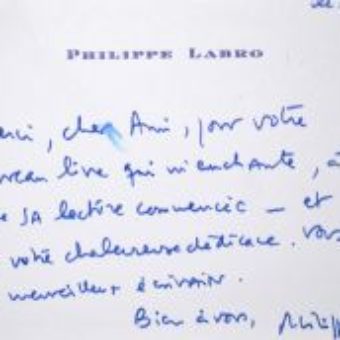 PHILIPPE LABRO
erci, cher Ami, pour votre
veau livre qui m'enchante,
SA lecture commencée — et
votre chaleureuse dédicace. Vous
merveilleux écrivain.
Bien à vous, Philipp